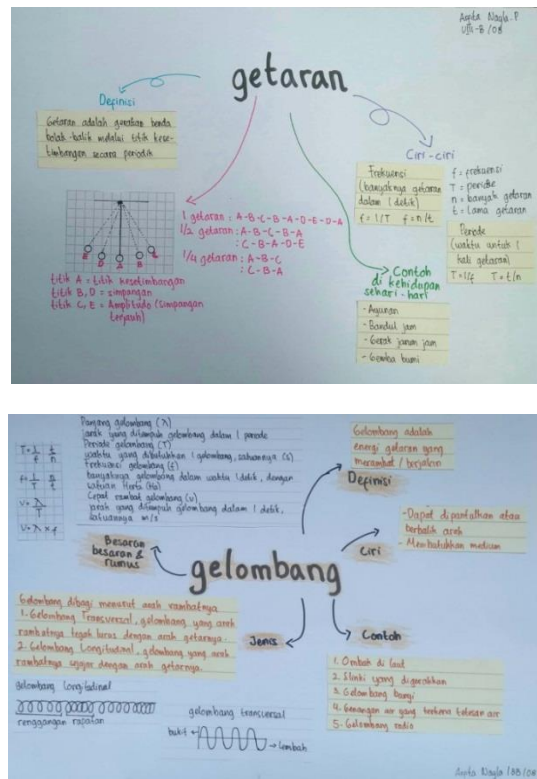 Aspita Nayla P
VIII-B / 08
getaran
Definisi
Getaran adalah gerakan benda
bolak-balik melalui titik kese-
timbangan secara periodik
E D A B C
titik A = titik kesetimbangan
titik B, D = simpangan
titik C, E = Amplitudo (simpangan
terjauh)
1 getaran : A-B-C-B-A-D-E-D-A
1/2 getaran : A-B-C-B-A
: C-B-A-D-E
1/4 getaran : A-B-C
: C-B-A
Ciri-ciri
Frekuensi
(banyaknya getaran
dalam 1 detik)
f = 1/T f = n/t
f = frekuensi
T = periode
n = banyak getaran
t = lama getaran
Periode
(waktu untuk 1
kali getaran)
T = 1/f T = t/n
Contoh
di kehidupan
sehari-hari
- Ayunan
- Bandul jam
- Gerak jarum jam
- Gempa bumi
Panjang gelombang (λ)
jarak yang ditempuh gelombang dalam 1 periode
Periode gelombang (T)
waktu yang dibutuhkan 1 gelombang, satuannya (s)
Frekuensi gelombang (f)
banyaknya gelombang dalam waktu 1 detik, dengan
satuan Hertz (Hz)
Cepat rambat gelombang (v)
jarak yang ditempuh gelombang dalam 1 detik,
satuannya m/s
T = 1/f t/n
f = 1/T n/t
v = λ/T
v = λ × f
Besaran
besaran &
rumus
gelombang
Gelombang adalah
energi getaran yang
merambat / berjalan
Definisi
- Dapat dipantulkan atau
berbalik arah
- Membutuhkan medium
Ciri
Gelombang dibagi menurut arah rambatnya
1. Gelombang Transversal, gelombang yang arah
rambatnya tegak lurus dengan arah getarnya.
2. Gelombang Longitudinal, gelombang yang arah
rambatnya sejajar dengan arah getarnya.
Jenis
Contoh
1. Ombak di laut
2. Slinki yang digerakkan
3. Gelombang bunyi
4. Genangan air yang terkena tetesan air
5. Gelombang radio
gelombang longitudinal
renggangan rapatan
gelombang transversal
bukit
lembah